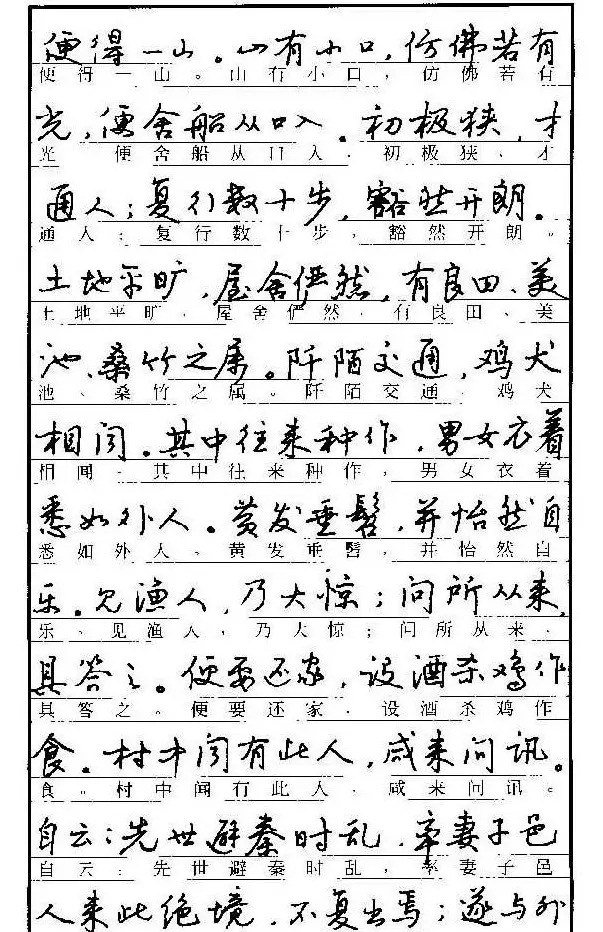 便得一山。山有小口，仿佛若有
便得一山。山有小口，仿佛若有
光，便舍船从口入。初极狭，才
光 便舍船从口入．初极狭、才
通人；复行数十步，豁然开朗。
通人；复行数十步，豁然开朗。
土地平旷，屋舍俨然，有良田、美
土地平旷，屋舍俨然，有良田、美
池、桑竹之属。阡陌交通，鸡犬
池、桑竹之属。阡陌交通，鸡犬
相闻。其中往来种作，男女衣着
相闻．其中往来种作，男女衣着
悉如外人。黄发垂髫，并怡然自
悉如外人、黄发垂髫，并怡然自
乐。见渔人，乃大惊；问所从来，
乐、见渔人、乃大惊；问所从来、
具答之。便要还家，设酒杀鸡作
具答之。便要还家，设酒杀鸡作
食。村中闻有此人，咸来问讯。
食。村中闻有此人、咸来问讯。
自云：先世避秦时乱，率妻子邑
自云：先世避秦时乱，率妻子邑
人来此绝境，不复出焉；遂与外